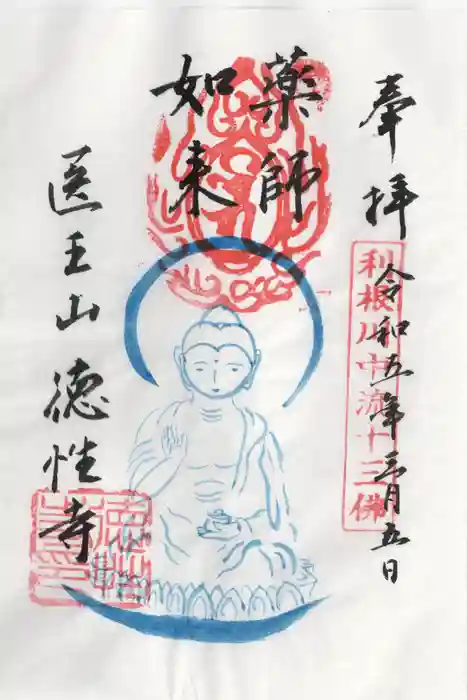 奉拝
利根川中流十三佛
令和五年三月五日
薬師
如来
医王山 徳性寺